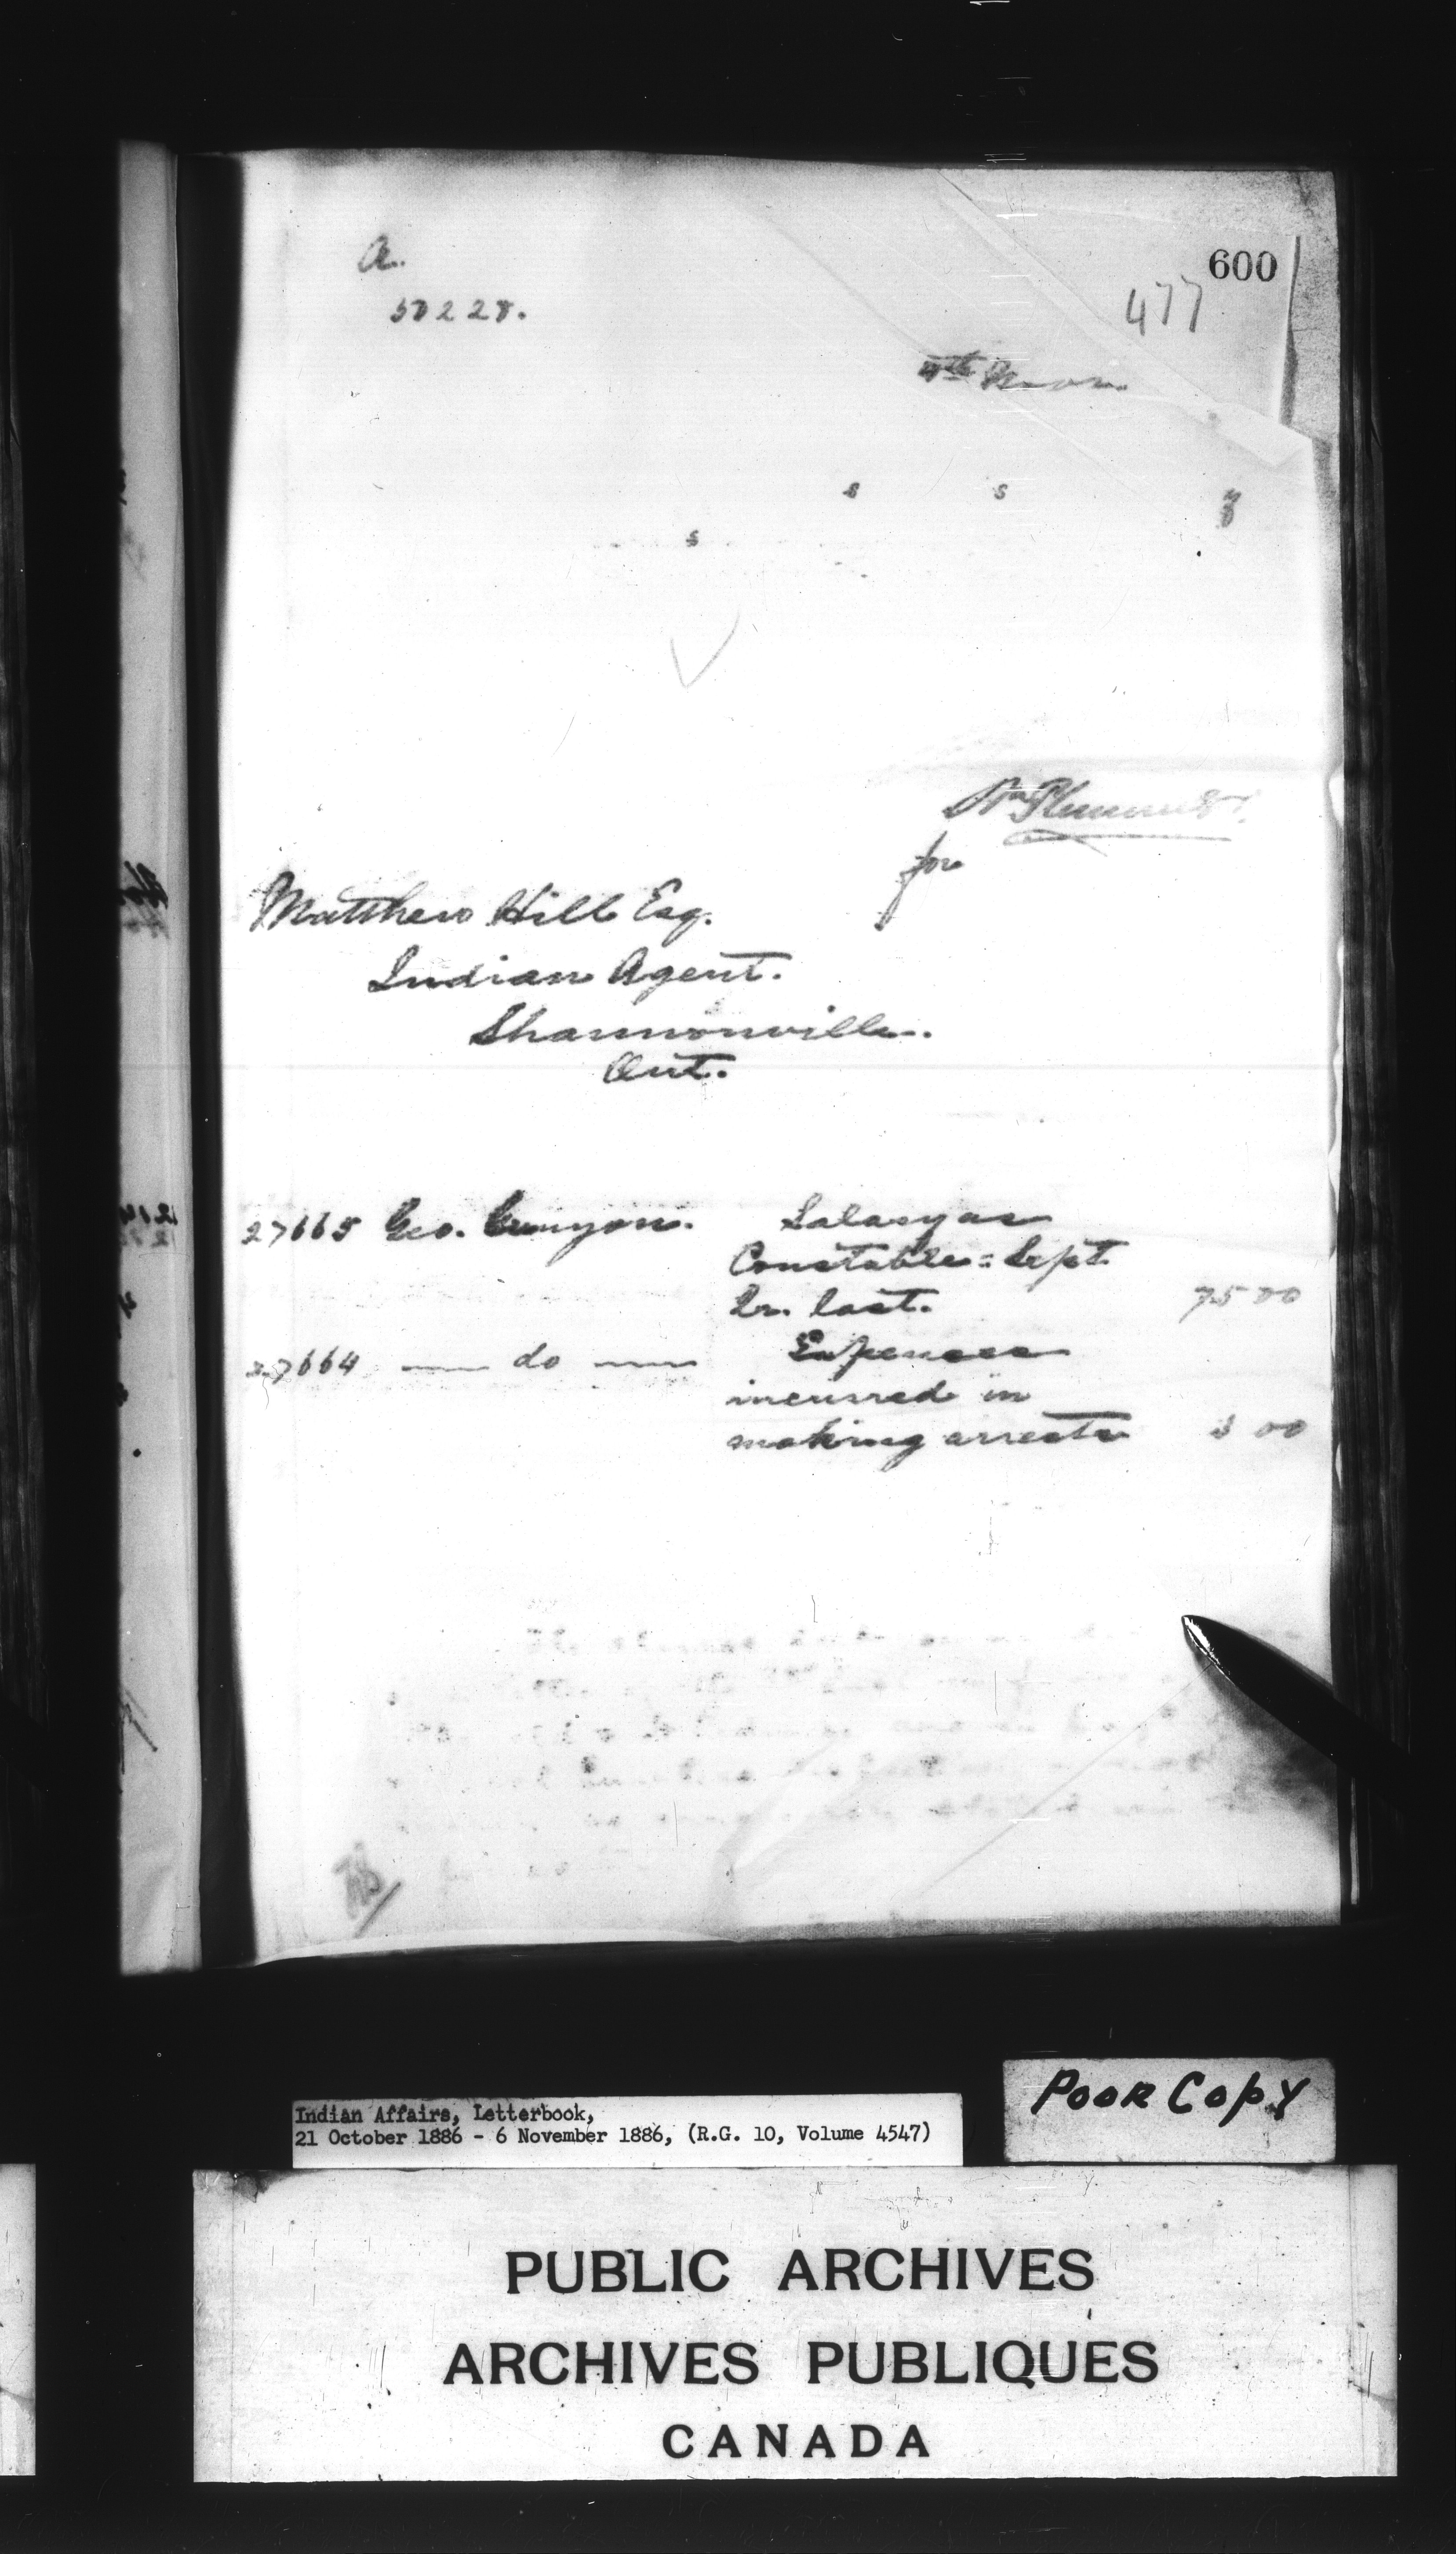 600
477
A.
4th Nov.
s s
s
for
Matthew Hill Esq.
Indian Agent.
Shannonville.
Ont.
27665 Geo. Salary as
Constable = Sept.
Qr. last. 75 00
27664 — do — Expenses
incurred in
making arrests 3 00
POOR COPY
Indian Affairs, Letterbook,
21 October 1886 - 6 November 1886, (R.G. 10, Volume 4547)
PUBLIC ARCHIVES
ARCHIVES PUBLIQUES
CANADA